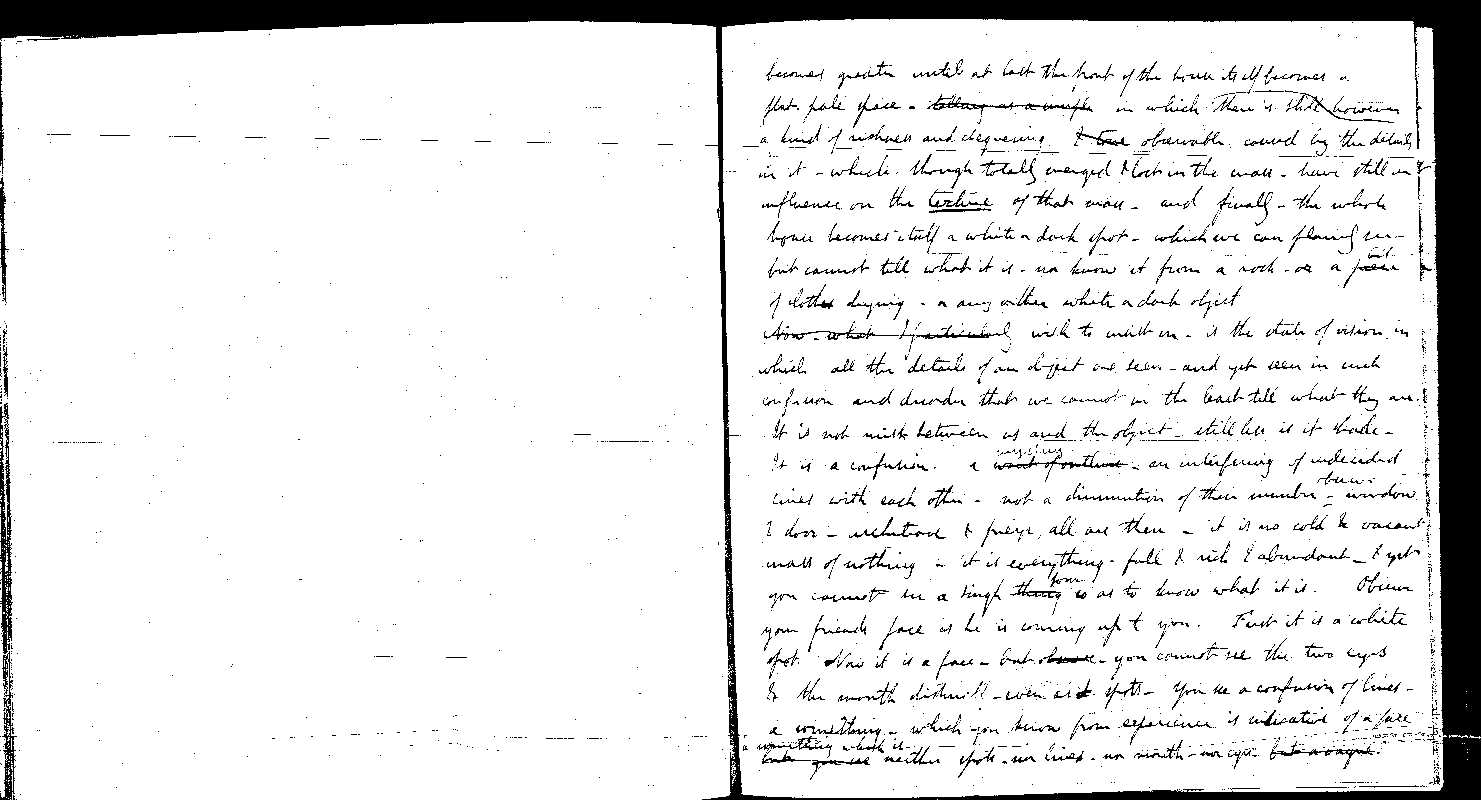 becomes greater until at last the front of the house itself becomes a
flat pale space - telling as a single in which there is still however
a kind of richness and observable caused by the details
in it - which though totally merged & lost in the mass - have still an
influence on the texture of that mass - and finally - the whole
house becomes itself a white or dark spot - which we can plainly see -
but cannot tell what it is - nor know it from a rock - or a piece
of clothes drying - or any other white or dark object
Now - what I particularly wish to insist on - is the state of vision in
which all the details of an object are seen - and yet seen in such
confusion and disorder that we cannot in the least tell what they are.
It is not mist between us and the object - still less is it shade -
It is a confusion. a want of outline - an interfering of undecided
mystery
lines with each other - not a diminution of their number - window
observe
& door - architrave & frieze, all are there - it is no cold & vacant
mass of nothing - it is everything - full & rich & abundant - & yet
you cannot see a single thing so as to know what it is. Observe
form
your friends face as he is coming up to you. First it is a white
spot. Now it is a face - but - you cannot see the two eyes
& the mouth distinct - even as spots - you see a confusion of lines -
a something - which you know from experience is indicative of a face
a something which is
but you see neither spots - nor lines - nor mouth - nor eyes - but a vague